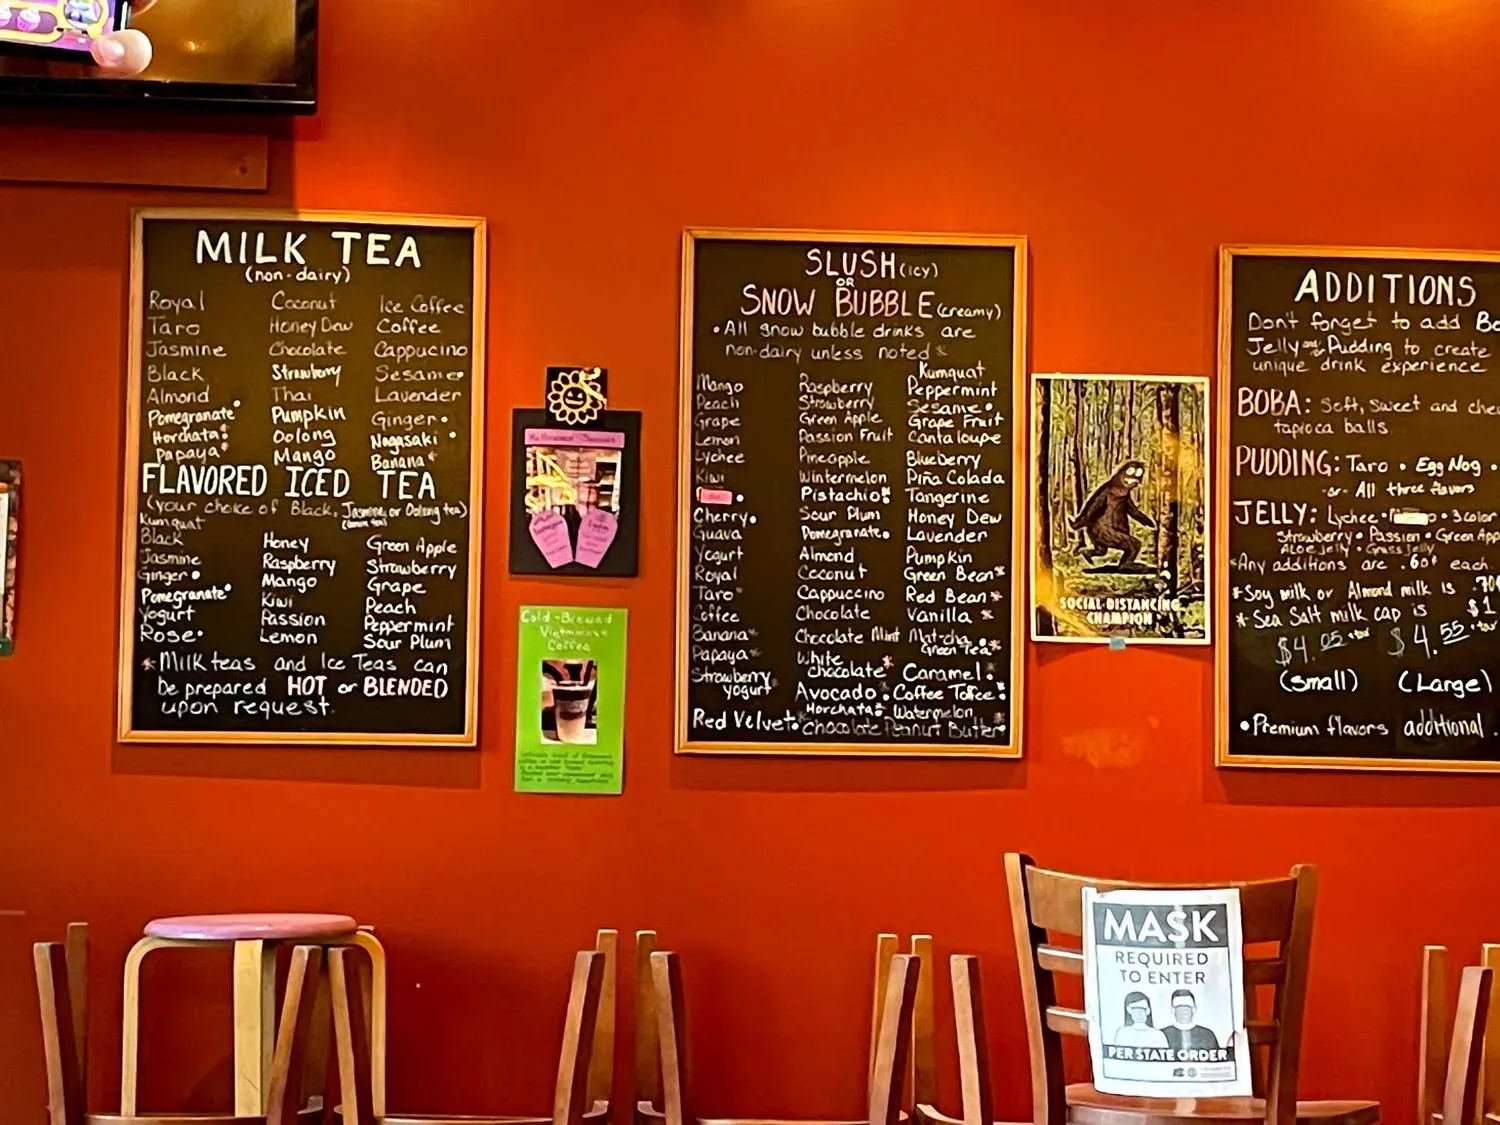 MILK TEA
(non-dairy)
Royal Coconut Ice Coffee
Taro Honey Dew Coffee
Jasmine Chocolate Cappucino
Black Strawberry Sesame•
Almond Thai Lavender
Pomegranate• Pumpkin Ginger•
Horchata Oolong Nagasaki •
Papaya* Mango Banana*
FLAVORED ICED TEA
(your choice of Black, Jasmine, or Oolong tea)
Kumquat
Black Honey Green Apple
Jasmine Raspberry Strawberry
Ginger• Mango Grape
Pomegranate• Kiwi Peach
Yogurt Passion Peppermint
Rose• Lemon Sour Plum
*Milk teas and Ice Teas can
be prepared HOT or BLENDED
upon request.
Cold-Brewed
Vietnamese
Coffee
SLUSH (icy)
OR
SNOW BUBBLE (creamy)
•All snow bubble drinks are
non-dairy unless noted*
Kumquat
Mango Raspberry Peppermint
Peach Strawberry Sesame•
Grape Green Apple Grape Fruit
Lemon Passion Fruit Cantaloupe
Lychee Pineapple Blueberry
Kiwi Wintermelon Piña Colada
• Pistachio Tangerine
Cherry• Sour Plum Honey Dew
Guava Pomegranate• Lavender
Yogurt Almond Pumpkin
Royal Coconut Green Bean*
Taro* Cappuccino Red Bean*
Coffee Chocolate Vanilla *
Banana* Chocolate Mint Matcha
Green Tea*
Papaya* White
chocolate* Caramel•
Strawberry
yogurt* Avocado• Coffee Toffee
Horchata Watermelon
Red Velvet• Chocolate Peanut Butter
SOCIAL DISTANCING
CHAMPION
ADDITIONS
Don't forget to add
Jelly and/or Pudding to create
unique drink experience
BOBA: Soft, Sweet and
tapioca balls.
PUDDING: Taro • Egg Nog •
-or- All three flavors
JELLY: Lychee • 3 color
Strawberry • Passion • Green
Aloe jelly • Grass jelly
*Any additions are .60¢ each.
*Soy milk or Almond milk is
*Sea Salt milk cap is $1
$4.05 $4.55
(small) (Large)
•Premium flavors additional.
MASK
REQUIRED
TO ENTER
PER STATE ORDER